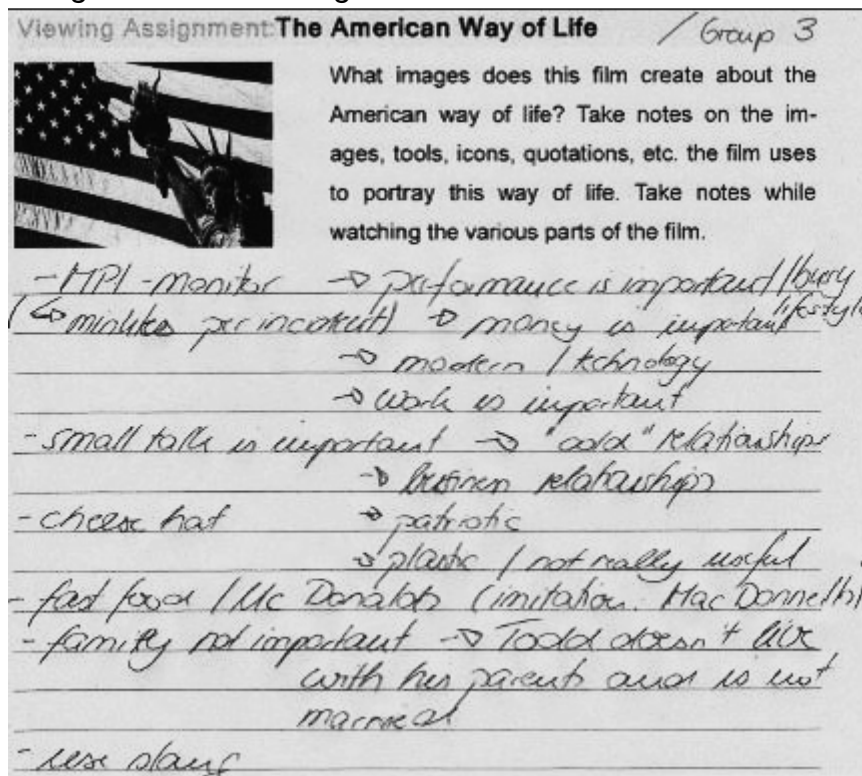 Viewing Assignment: The American Way of Life / Group 3
What images does this film create about the
American way of life? Take notes on the im-
ages, tools, icons, quotations, etc. the film uses
to portray this way of life. Take notes while
watching the various parts of the film.
- MPI - monitor → performance is important / busy lifestyle
(↳ minutes per incident) → money is important
→ modern / technology
→ work is important
- small talk is important → "cold" relationships
→ business relationships
- cheese hat → patriotic
→ plastic / not really useful
- fast food / Mc Donalds (imitation: Mac Donnell's)
- family not important → Todd doesn't live
with his parents and is not
married
- use slang